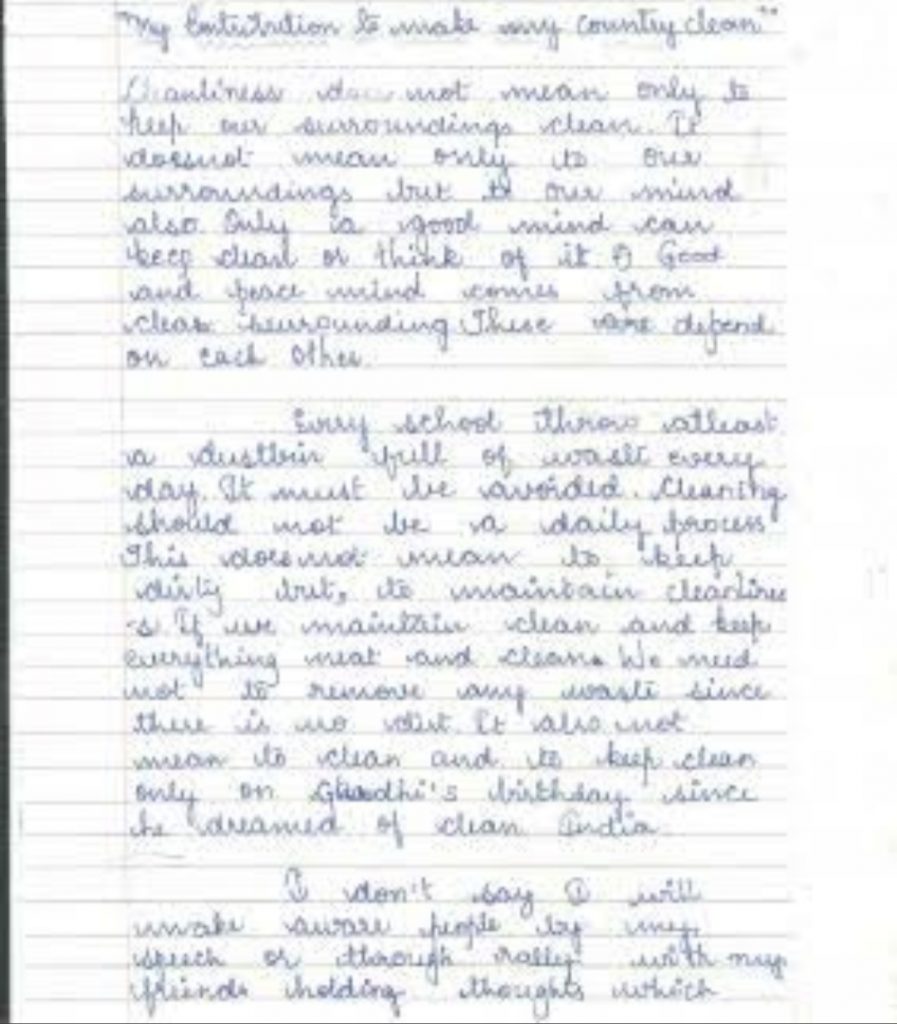 "My Contribution to make my country clean"
Cleanliness does not mean only to
keep our surroundings clean. It
doesnot mean only to our
surroundings but to our mind
also. Only a good mind can
keep clean or think of it. A Good
and peace mind comes from
clean surrounding. These are depend
on each other.
Every school throw atleast
a dustbin full of waste every
day. It must be avoided. Cleaning
should not be a daily process
This doesnot mean to keep
dirty but, to maintain cleanlines
-s. If we maintain clean and keep
everything neat and clean. We need
not to remove any waste since
there is no dirt. It also not
mean to clean and to keep clean
only on Gandhi's birthday since
he dreamed of clean India
I don't say I will
make aware people by my
speech or through rally with my
friends holding thoughts which